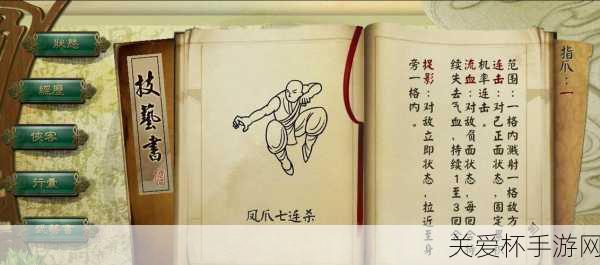 狀態
經歷
俠客
行囊
技藝書
技藝書
凤爪七连杀
指爪：一
范围：一格内溅射一格敌方
连击：对己正面状态，固定
机率连击。
流血：对敌负面状态，每回合
续失去气血，持续1至3回合
捉影：对敌立即状态，拉近至身
旁一格内。
关爱杯手游网